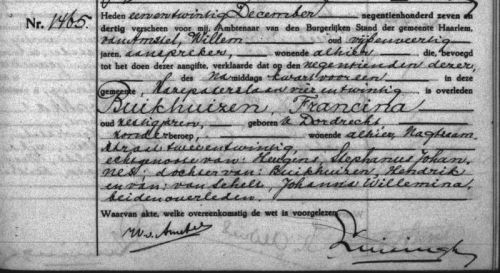 Nr. 1465
Heden eenentwintig December negentienhonderd zeven en
dertig verscheen voor mij, Ambtenaar van den Burgerlijken Stand der gemeente Haarlem,
van Amstel, Willem oud vijfenveertig
jaren, aanspreker, wonende alhier, die, bevoegd
tot het doen dezer aangifte, verklaarde dat op den negentienden dezer,
des Na middags kwart voor een in deze
gemeente, Kazernestraat vierentwintig is overleden
Buikhuizen, Francina,
oud zestig jaren, geboren te Dordrecht
zonder beroep, wonende alhier,
straat tweeentwintig,
echtgenoote van: Huigins, Stephanus Johan-
nes; dochter van: Buikhuizen, Hendrik
en van: van Schelt, Johanna Willemina,
beiden overleden.
Waarvan akte, welke overeenkomstig de wet is voorgelezen.
W. v. Amstel